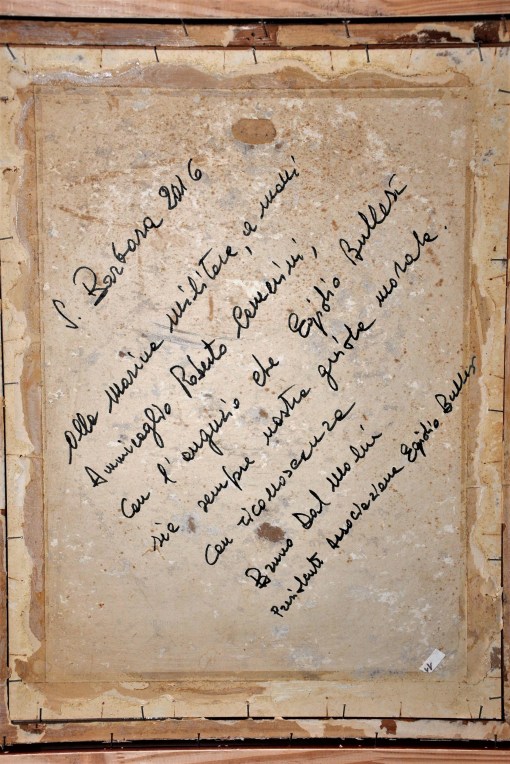 S. Barbara 2016
Alla Marina militare, a mani
Ammiraglio Roberto Camerini,
Con l'augurio che Egidio Bullesi
sia sempre nostra guida morale.
Con riconoscenza
Bruno Dal Molin
Presidente Associazione Egidio Bullesi